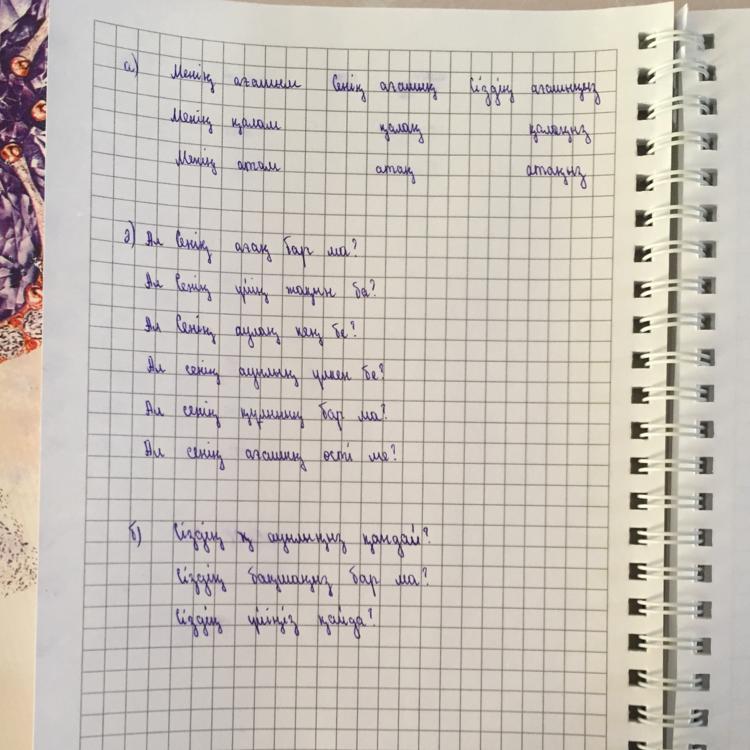 а) Менің ағашым Сенің ағашың Сіздің ағашыңыз
Менің қалам қалаң қалаңыз
Менің атам атаң атаңыз
ә) Ал Сенің ағаң бар ма?
Ал Сенің үйің жақын ба?
Ал Сенің аулаң кең бе?
Ал сенің ауылың үлкен бе?
Ал сенің құлының бар ма?
Ал сенің ағашың өсті ме?
б) Сіздің ауылыңыз қандай?
Сіздің бақшаңыз бар ма?
Сіздің үйіңіз қайда?